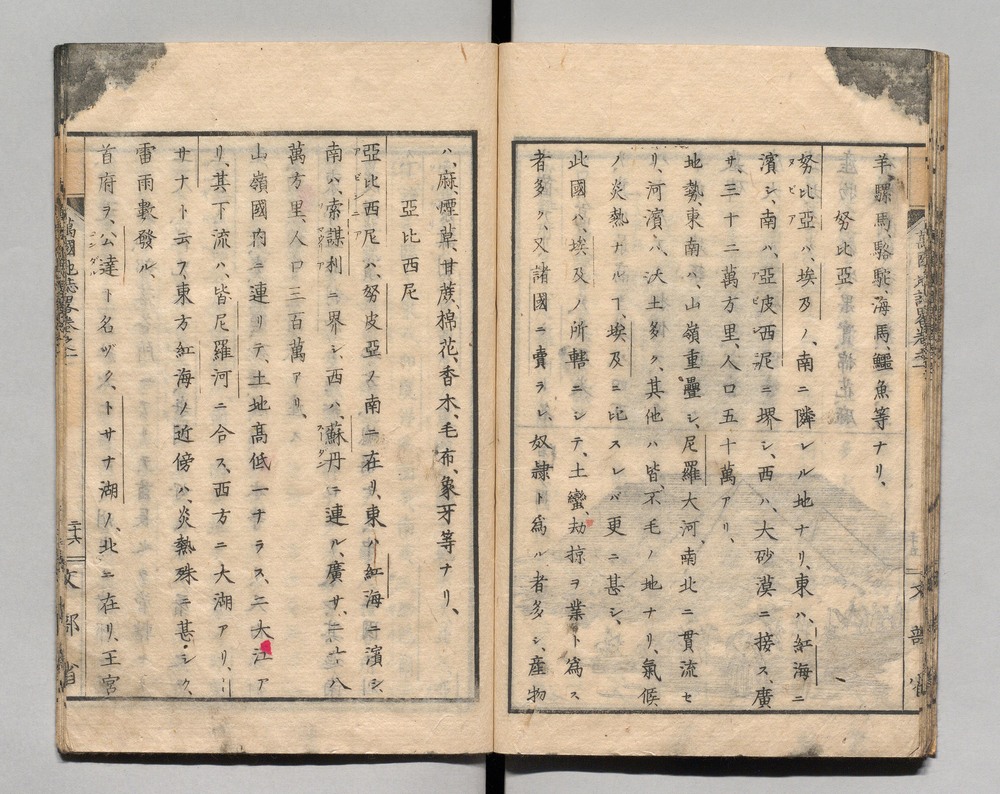 羊、騾馬、駱駝、海馬、鱷魚等ナリ、
努比亞
努比亞ハ、埃及ノ、南ニ隣レル地ナリ、東ハ、紅海ニ
ヌビア
濱シ、南ハ、亞皮西泥ニ堺シ、西ハ、大砂漠ニ接ス、廣
サ、三十二萬方里、人口五十萬アリ、
地勢、東南ハ、山嶺重疊シ、尼羅大河、南北ニ貫流セ
リ、河濱ハ、沃土多ク、其他ハ皆、不毛ノ地ナリ、氣候
ノ炎熱ナルヿ、埃及ニ比スレバ更ニ甚シ、
此國ハ、埃及ノ所轄ニシテ、土蠻、劫掠ヲ業ト爲ス
者多ク、又諸國ニ賣ラレ、奴隷ト爲ル者多シ、産物
ハ、麻、煙草、甘蔗、棉花、香木、毛布、象牙等ナリ、
亞比西尼
亞比西尼ハ、努皮亞ノ南ニ在リ、東ハ紅海ニ濱シ、
アビシニア
南ハ、索謀利ニ界シ、西ハ、蘇丹ニ連ル、廣サ、二十八
スーダン
萬方里、人口三百萬アリ、
山嶺國内ニ連リテ、土地高低一ナラス、二大江ア
リ、其下流ハ、皆尼羅河ニ合ス、西方ニ大湖アリ、
サナト云フ、東方紅海ノ近傍ハ、炎熱殊ニ甚シク、
雷雨數發ル、
首府ヲ、公達ト名ヅク、トサナ湖ノ、北ニ在リ、王宮
ゴンダル
萬國地誌畧卷之二
二十六
文部省
文部省